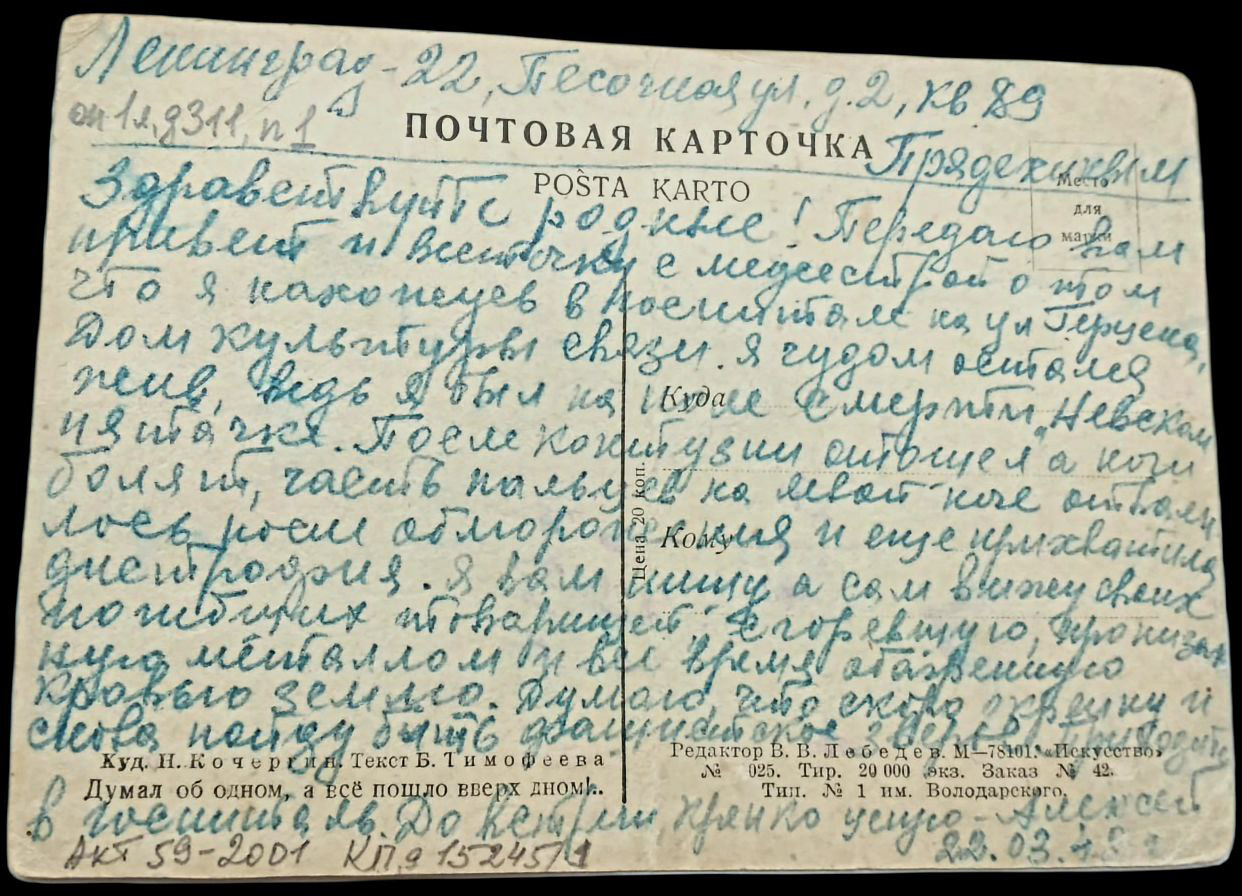 Ленинград-22, Песочная ул. д.2, кв 89
оп 1л, д311, п1
ПОЧТОВАЯ КАРТОЧКА
Прядехиным
POŜTA KARTO
Место
для
марки
Здравствуйте родные! Передаю Вам
привет и весточку с медсестрой о том
что я нахожусь в госпитале на ул Герцена,
Дом культуры связи. Я чудом остался
жив, ведь я был на поле смерти "Невском
пятачке. После контузии отошел а ноги
болят, часть пальцев на левой ноге отвали
лось после обморожения и еще прихватила
дистрофия. Я вам пишу а сам вижу своих
погибших товарищей, сгоревшую, пронизан
ную металлом и все время
кровью землю. Думаю, что скоро окрепну и
снова пойду бить фашистское зверье. Приходите
в госпиталь. До встречи, крепко целую - Алексей
22.03.
Куда
Кому
Цена 20 коп.
Худ. Н. Кочергин. Текст Б. Тимофеева
Думал об одном, а всё пошло вверх дном..
Редактор В. В. Лебедев. М—78101. «Искусство»
№ 025. Тир. 20 000 экз. Заказ № 42.
Тип. № 1 им. Володарского.
Акт 59-2001 КП д 15245/1